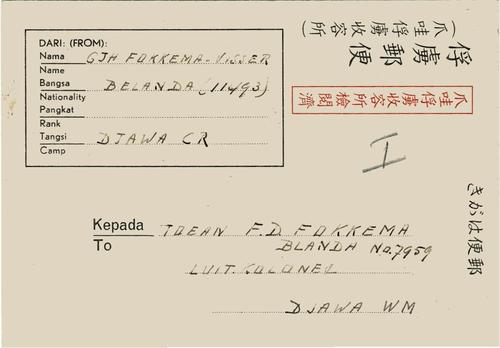 DARI: (FROM):
Nama GJH FOKKEMA-VISSER
Name
Bangsa BELANDA (11493)
Nationality
Pangkat
Rank
Tangsi DJAWA CR
Camp
俘虜郵便
(爪哇俘虜収容所)
爪哇俘虜収容所檢閱濟
きがは便郵
Kepada TOEAN F.D. FOKKEMA
To BLANDA No. 7959
LUIT. KOLONEL
DJAWA WM